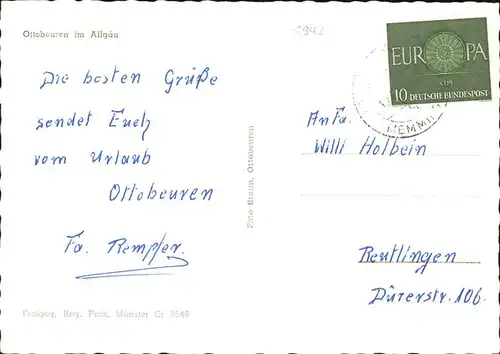 Ottobeuren im Allgäu
Die besten Grüße
sendet Euch
vom Urlaub
Ottobeuren
Fa. Rempfer.
Freigeg. Reg. Präs. Münster Cr 3548
Foto Braun, Ottobeuren
5942
EUROPA
CEPT
10 DEUTSCHE BUNDESPOST
MEMMI
An Fa.
Willi Holbein
Reutlingen
Dürerstr. 106.